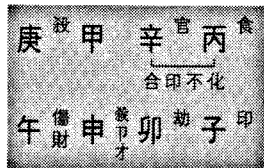 庚 殺 甲 辛 官 丙 食
合印不化
午 傷財 申 殺卩才 卯 劫 子 印